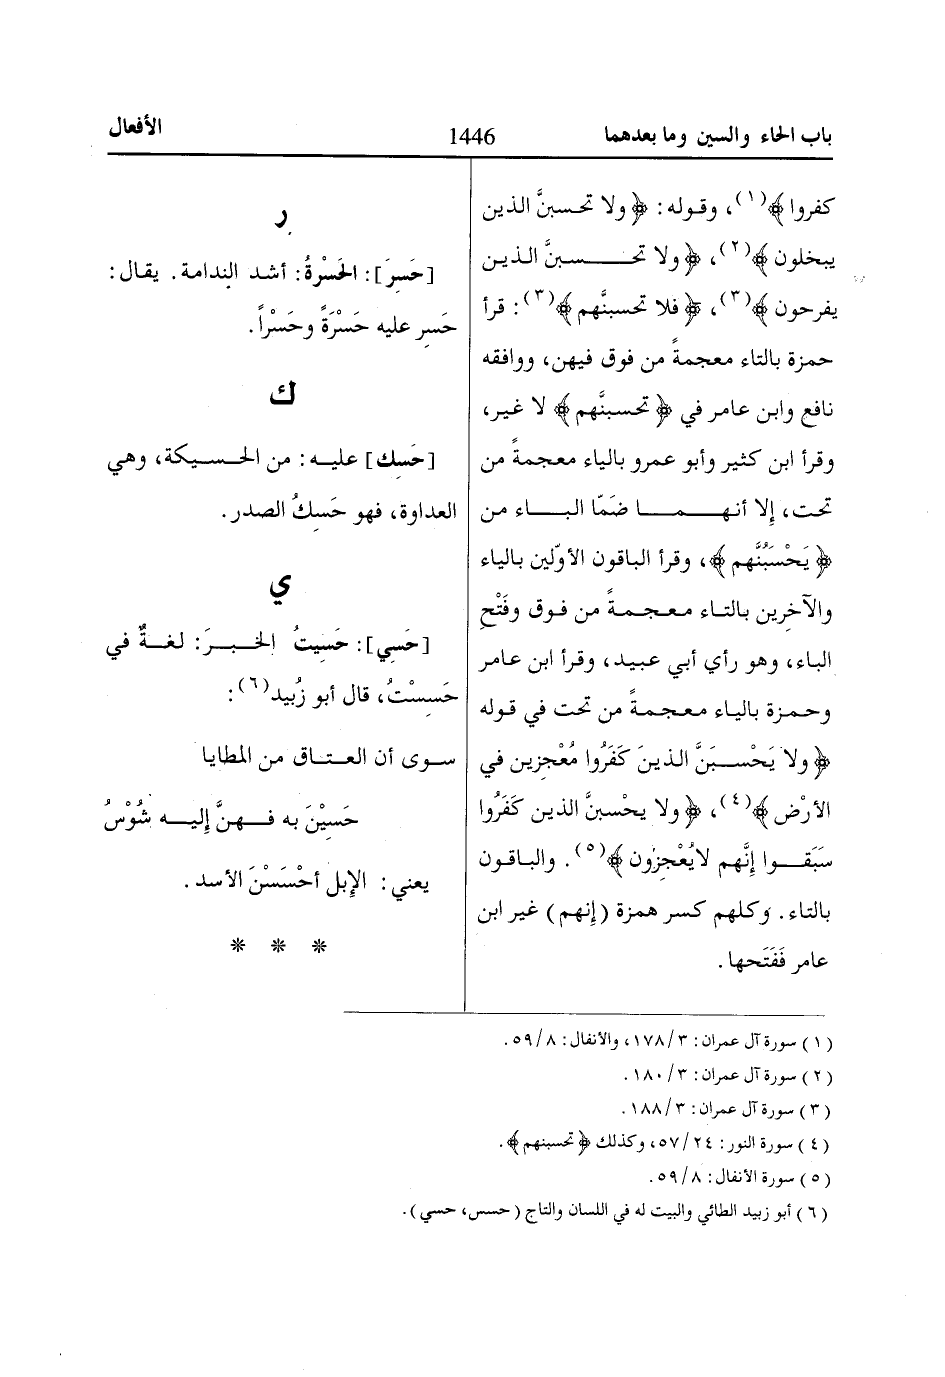 باب الحاء والسين وما بعدهما
1446
الأفعال
كفروا﴾(١)، وقوله: ﴿ولا تحسبنَّ الذين
يبخلون﴾(٢)، ﴿ولا تحسبنَّ الذين
يفرحون﴾(٣)، ﴿فلا تحسبنَّهم﴾(٣): قرأ
حمزة بالتاء معجمةً من فوق فيهن، ووافقه
نافع وابن عامر في ﴿تحسبنَّهم﴾ لا غير،
وقرأ ابن كثير وأبو عمرو بالياء معجمةً من
تحت، إلا أنهما ضَمّا الباء من
﴿يَحْسَبُنَّهم﴾، وقرأ الباقون الأوّلين بالياء
والآخرين بالتاء معجمةً من فوق وفَتْحِ
الباء، وهو رأي أبي عبيد، وقرأ ابن عامر
وحمزة بالياء معجمةً من تحت في قوله
﴿ولا يَحْسَبَنَّ الذينَ كَفَرُوا مُعْجزين في
الأرْض﴾(٤)، ﴿ولا يحْسبنَّ الذين كَفَرُوا
سَبَقوا إنَّهم لايُعْجِزون﴾(٥). والباقون
بالتاء. وكلهم كسر همزة (إنهم) غير ابن
عامر فَفَتَحها.
ر
[حَسرَ]: الحَسْرةُ: أشد الندامة. يقال:
حَسر عليه حَسْرَةً وحَسْراً.
ك
[حَسِك] عليه: من الحسيكة، وهي
العداوة، فهو حَسكُ الصدر.
ي
[حَسي]: حَسِيتُ الخبرَ: لغةٌ في
حَسِسْتُ، قال أبو زُبيد(٦):
سوى أن العتاق من المطايا
حَسيْنَ به فهنَّ إليه شُوْسُ
يعني: الإبل أحْسَسْنَ الأسد.
* * *
(١) سورة آل عمران: ١٧٨/٣، والأنفال: ٥٩/٨.
(٢) سورة آل عمران: ١٨٠/٣.
(٣) سورة آل عمران: ١٨٨/٣.
(٤) سورة النور: ٥٧/٢٤، وكذلك ﴿تحسبنهم﴾.
(٥) سورة الأنفال: ٥٩/٨.
(٦) أبو زبيد الطائي والبيت له في اللسان والتاج (حسس، حسي).